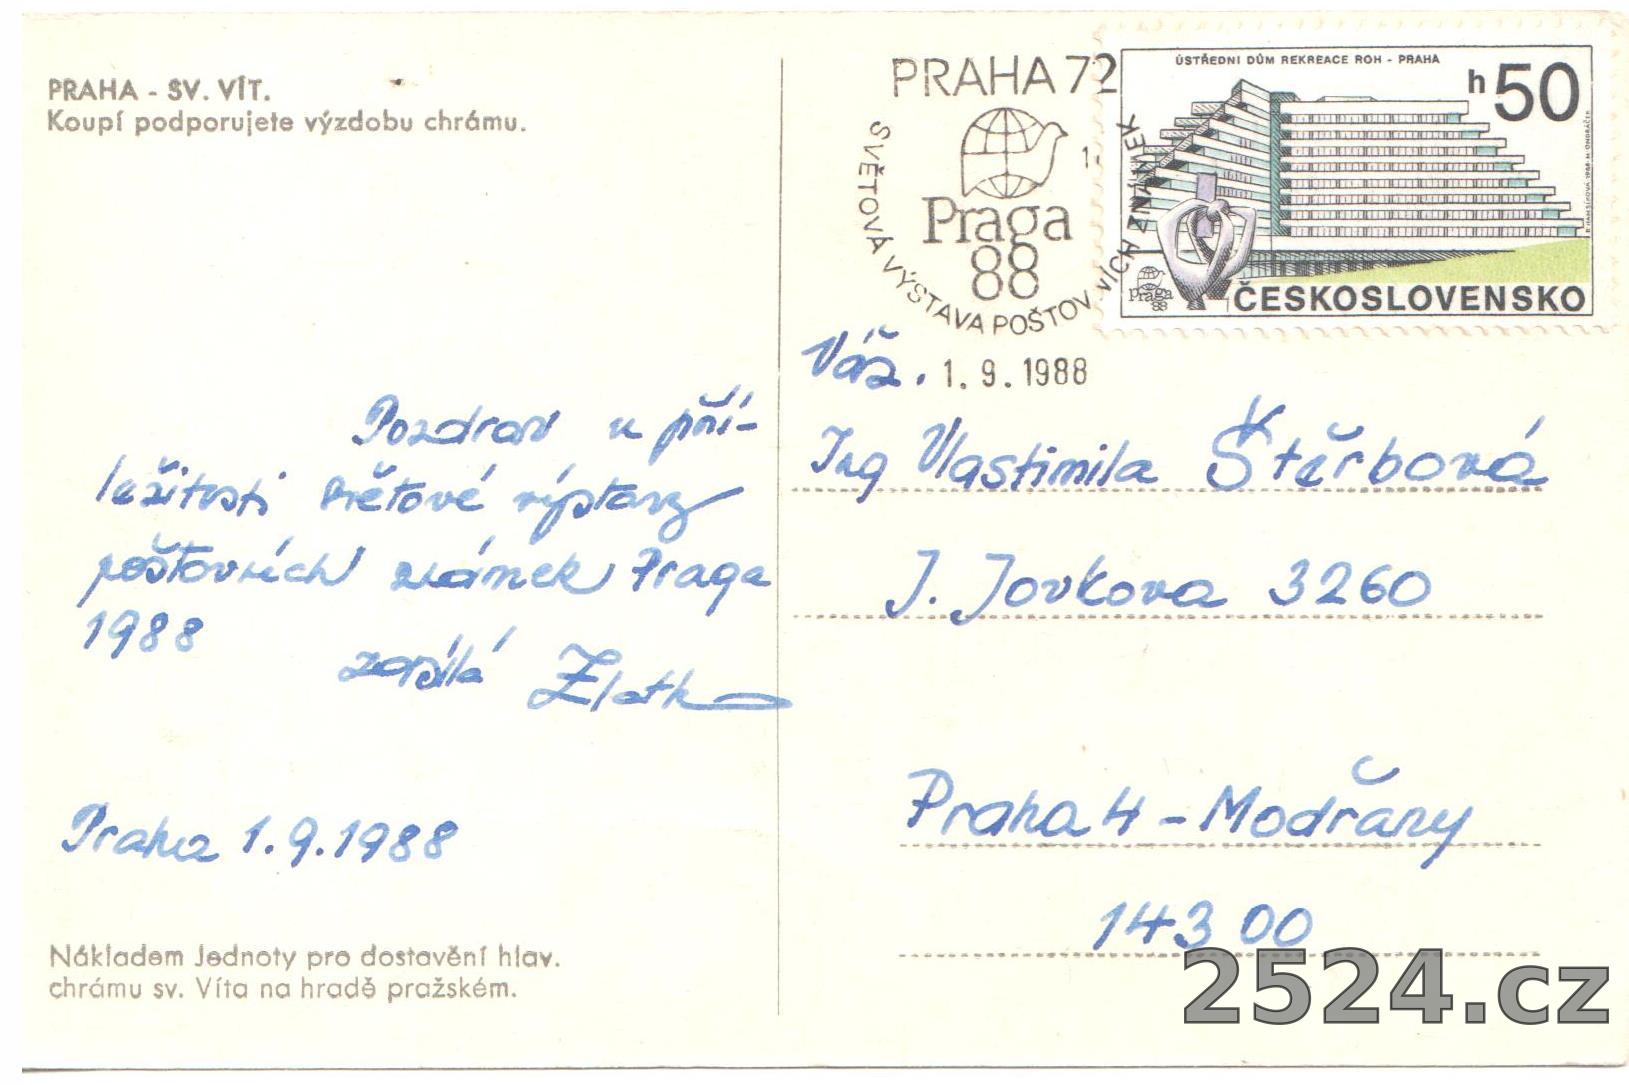 PRAHA - SV. VÍT.
Koupí podporujete výzdobu chrámu.
Pozdrav u pří-
ležitosti světové výstavy
poštovních známek Praga
1988
zasílá Zlatka
Praha 1.9.1988
Nákladem Jednoty pro dostavění hlav.
chrámu sv. Víta na hradě pražském.
PRAHA 72
1.
Praga
88
SVĚTOVÁ VÝSTAVA POŠTOVNÍCH ZNÁMEK
1.9.1988
ÚSTŘEDNÍ DŮM REKREACE ROH - PRAHA
h 50
praga
88
ČESKOSLOVENSKO
Váž.
Ing Vlastimila Štěrbová
J. Jovkova 3260
Praha 4 - Modřany
143 00
2524.cz